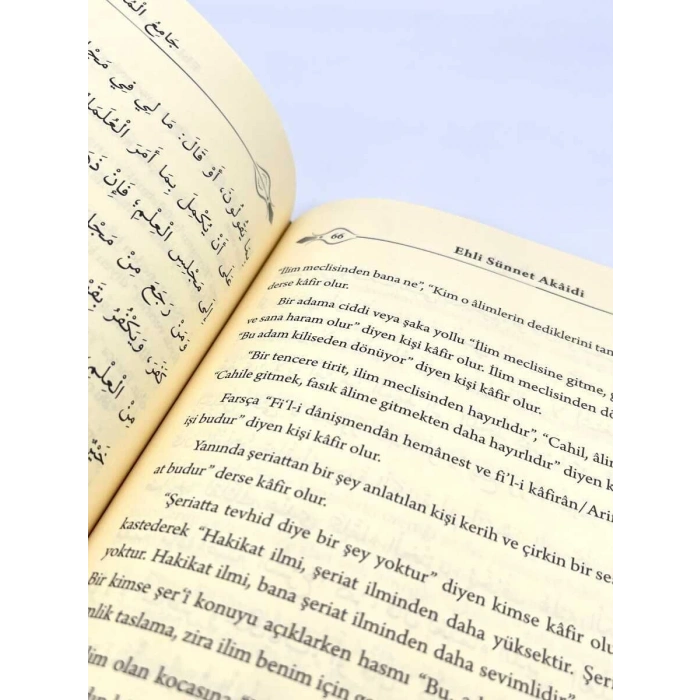 جَامِعُ
يَقُولُونَ، أَوْ قَالَ: مَا لِي فِي
عَلَى أَنْ يُكْمِلَ بِمَا أَمَرَ الْعُلَمَا
إِلَى مَجْلِسِ الْعِلْمِ، فَإِنْ
وَمَنْ رَجَعَ مِنْ
كَفَرَ، وَيَكْفُرُ
مِنَ الْعِلْمِ
خَيْرٌ
66
Ehli Sünnet Akâidi
"İlim meclisinden bana ne", "Kim o âlimlerin dediklerini tam
derse kâfir olur.
Bir adama ciddi veya şaka yollu "İlim meclisine gitme, g
ve sana haram olur" diyen kişi kâfir olur. İlim meclisinden dö
"Bu adam kiliseden dönüyor" diyen kişi kâfir olur.
"Bir tencere tirit, ilim meclisinden hayırlıdır", "Cahil, âlim
"Cahile gitmek, fasık âlime gitmekten daha hayırlıdır" diyen k
Farsça "Fi'l-i dânişmendân hemânest ve fi'l-i kâfirân/Arif
işi budur" diyen kişi kâfir olur.
Yanında şeriattan bir şey anlatılan kişi kerih ve çirkin bir se
at budur" derse kâfir olur.
"Şeriatta tevhid diye bir şey yoktur" diyen kimse kâfir olu
kastederek "Hakikat ilmi, şeriat ilminden daha yüksektir. Şeri
yoktur. Hakikat ilmi, bana şeriat ilminden daha sevimlidir"
Bir kimse şer'î konuyu açıklarken hasmı "Bu, a
nlik taslama, zira ilim benim için
lim olan kocasına